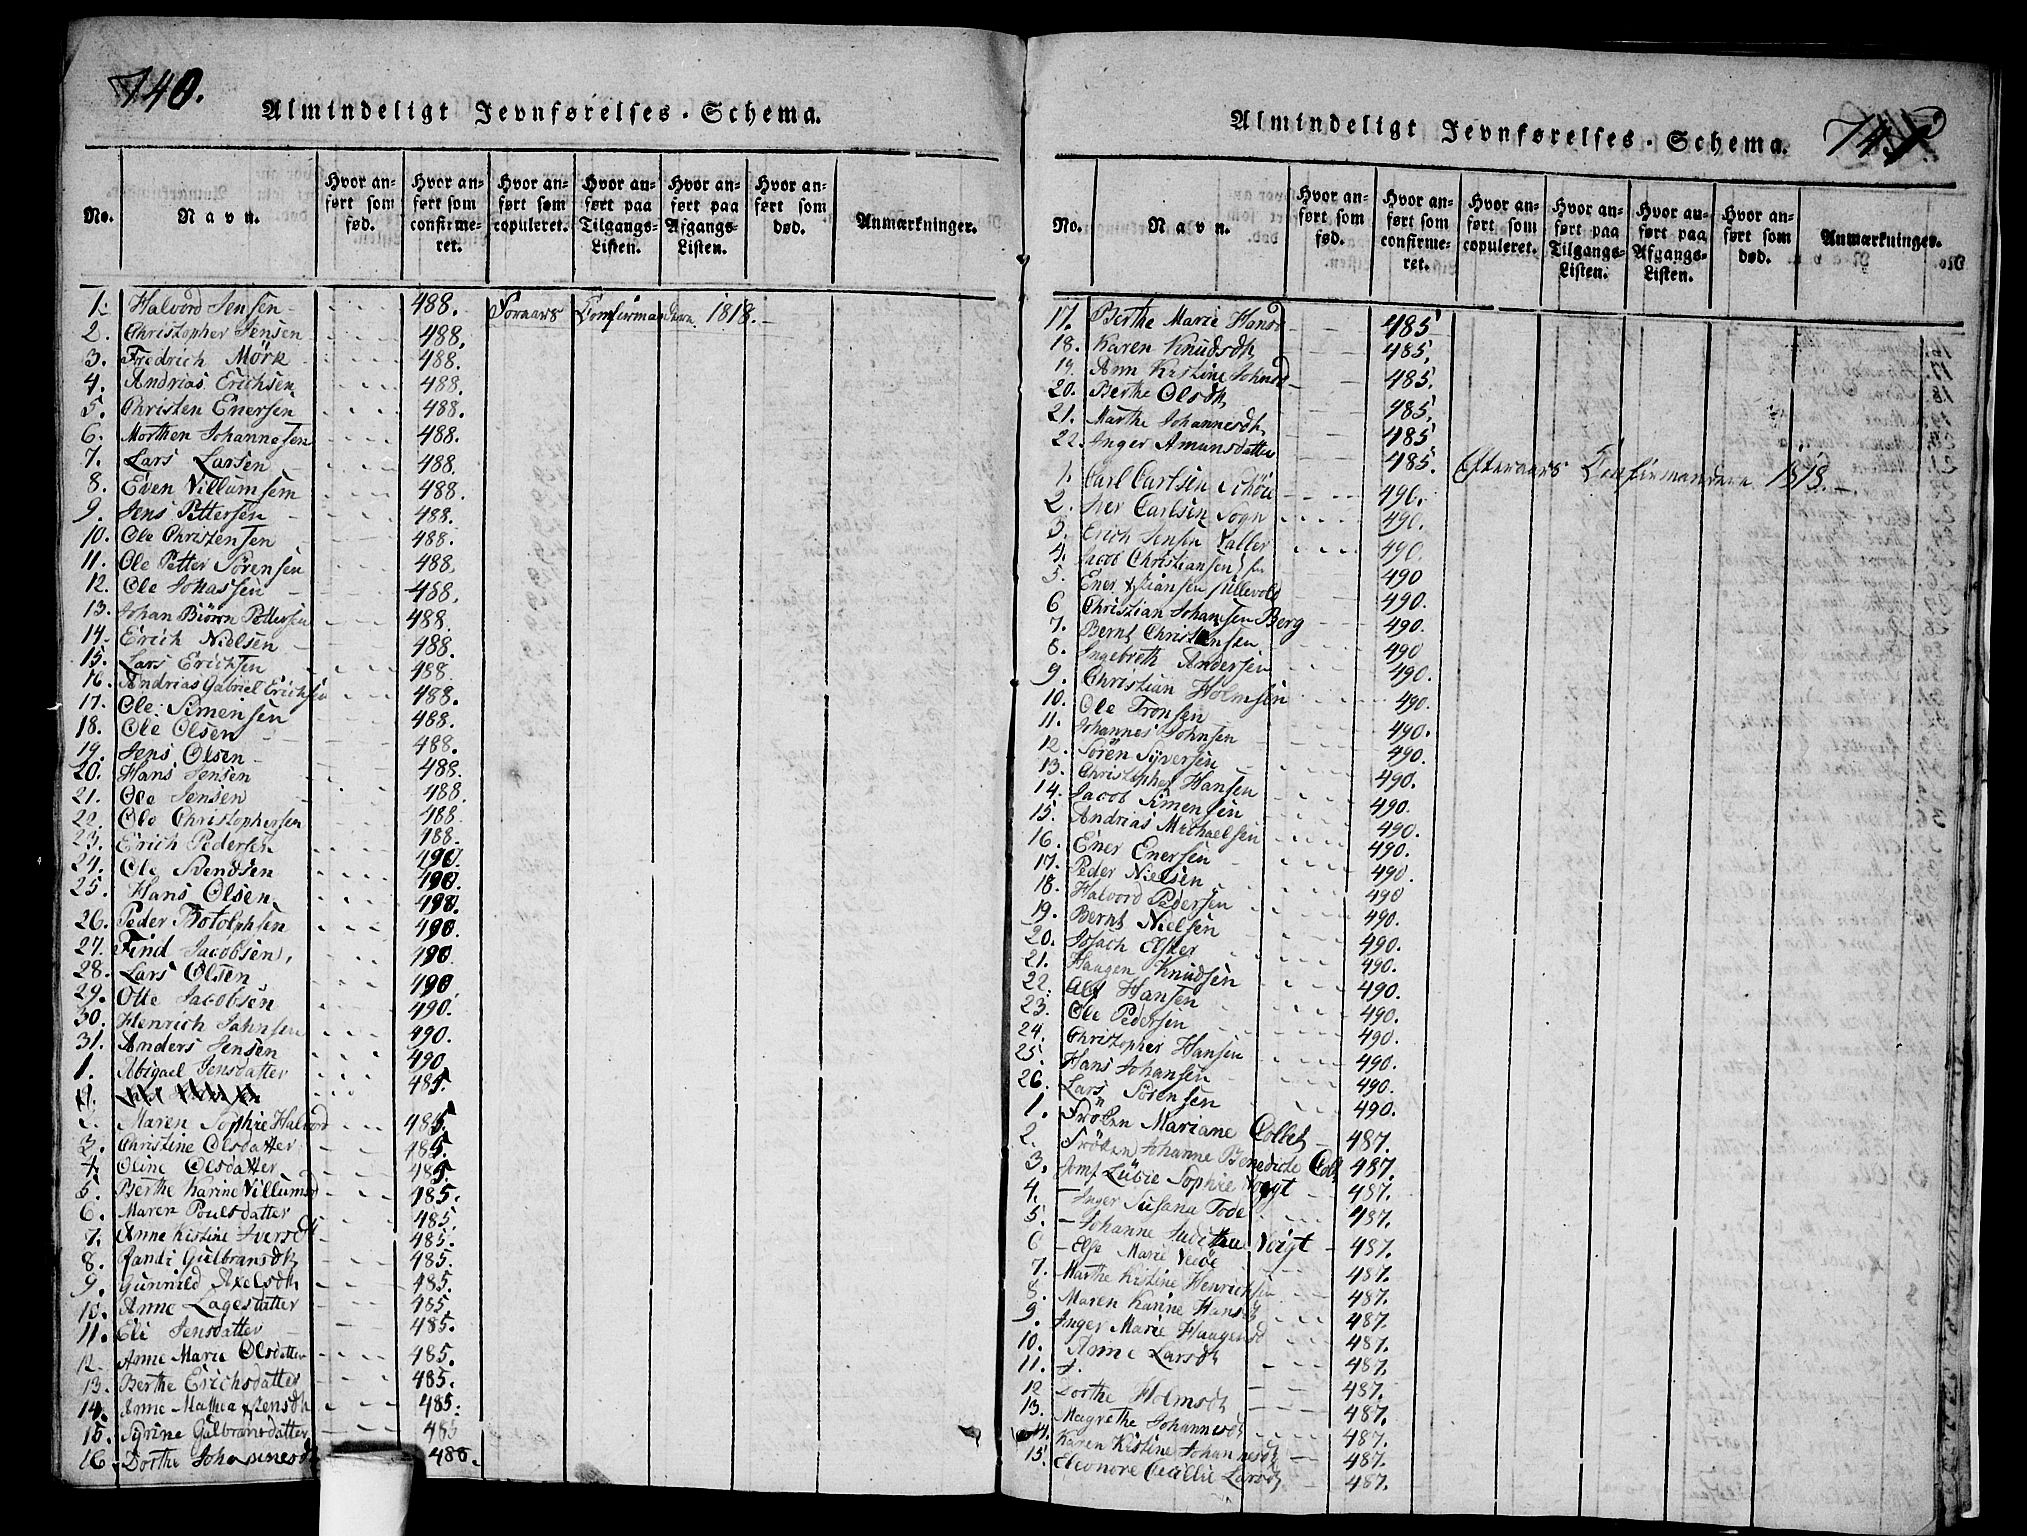 740.
Almindeligt Jevnførelses-Schema.
No.
Navn.
Hvor anført som fød.
Hvor anført som confirmeret.
Hvor anført som copuleret.
Hvor anført paa Tilgangs-Listen.
Hvor anført paa Afgangs-Listen.
Hvor anført som død.
Anmærkninger.
1. Halvord Jensen 488. Foraars Confirmandern 1818.
2. Christopher Jensen 488.
3. Fredrich Mörk 488.
4. Andrias Erichsen 488.
5. Christen Enersen 488.
6. Morthen Johannesen 488.
7. Lars Larsen 488.
8. Even Villumsem 488.
9. Jens Pettersen 488.
10. Ole Christensen 488.
11. Ole Petter Sörensen 488.
12. Ole Johassen 488.
13. Johan Biørn Pedersen 488.
14. Erich Nielsen 488.
15. Lars Erichsen 488.
16. Andrias Gabriel Erichsen 488.
17. Ole Simensen 488.
18. Ole Olsen 488.
19. Jens Olsen 488.
20. Hans Jensen 488.
21. Ole Jensen 488.
22. Ole Christophersen 488.
23. Erich Pedersen 488.
24. Ole Svendsen 490.
25. Hans Olsen 490.
26. Peder Botolphsen 490.
27. Find Jacobsen 490.
28. Lars Olsen 490
29. Otte Jacobsen 490.
30. Henrich Jahnsen 490.
31. Anders Jensen 490
1. Abigael Jensdatter 485.
2. Maren Sophie Halvord 485.
3. Christine Olsdatter 485.
4. Oline Olsdatter 485.
5. Berthe Karine Villumsd 485.
6. Maren Poulsdatter 485.
7. Anne Kistine Iversdt 485.
8. Randi Gulbransdt 485.
9. Gunnild Axelsdt 485.
10. Anne Lagesdatter 485.
11. Eli Jensdatter 485.
12. Anne Marie Olsdatter 485.
13. Berthe Erichsdatter 485.
14. Anne Mathea Jensdt 485.
15. Syrine Gulbransdatter 485
16. Dorthe Johannesdt 486.
741
Almindeligt Jevnførelses-Schema.
No.
Navn.
Hvor anført som fød.
Hvor anført som confirmeret.
Hvor anført som copuleret.
Hvor anført paa Tilgangs-Listen.
Hvor anført paa Afgangs-Listen.
Hvor anført som død.
Anmærkninger.
17. Berthe Marie Hansd 485
18. Karen Knudsdt 485.
19. Ann Kistine Johnsd 485.
20. Berthe Olsdt 485.
21. Marthe Johannesdt 485.
22. Inger Amunsdatter 485.
1. Carl Carlsen Schöu 490. Efteraars Confirmandern 1818.
2. Iver Carlsen Sogn 490.
3. Erich Jensen Laller 490.
4. Jacob Christiansen 490
5. Ener Xstiansen Ullevold 490.
6 Christian Johansen Berg 490.
7. Bernt Christensen 490
8. Ingebreth Andersen 490.
9. Christian Holmsen 490.
10. Ole Tronsen 490.
11. Johannes Johnsen 490.
12. Sörén Syversen 490.
13. Christopher Hansen 490.
14. Jacob Simensen 490.
15. Andrias Michaelsen 490.
16. Ener Enersen 490.
17. Peder Nielsen 490.
18. Halvord Pedersen 490
19. Bernt Nielsen 490.
20. Isach Esker 490.
21. Haagen Knudsen 490.
22. Alf Hansen 490.
23. Ole Pedersen 490.
24. Christopher Hansen 490.
25. Hans Johansen 490.
26. Lars Sörensen 490.
1. Fröken Mariane Collet 487.
2. Fröken Johanne Benedicte Coll 487.
3. Jomf Lúcie Sophie Voigt 487.
4. Inger Susana Tode 487.
5. Johanne Juditha Voigt 487.
6 Else Marie Veiöe 487.
7. Marthe Kistine Henrichsn 487.
8. Maren Karine Hansdt 487.
9. Inger Marie Haagensd 487.
10. Anne Larsdt 487.
11. 487.
12 Dorthe Holmsdt 487.
13. Magrethe Johannesdt 487.
14. Karen Kistine Johannesdt 487.
15. Eleonore Cecillie Larsdt 487.